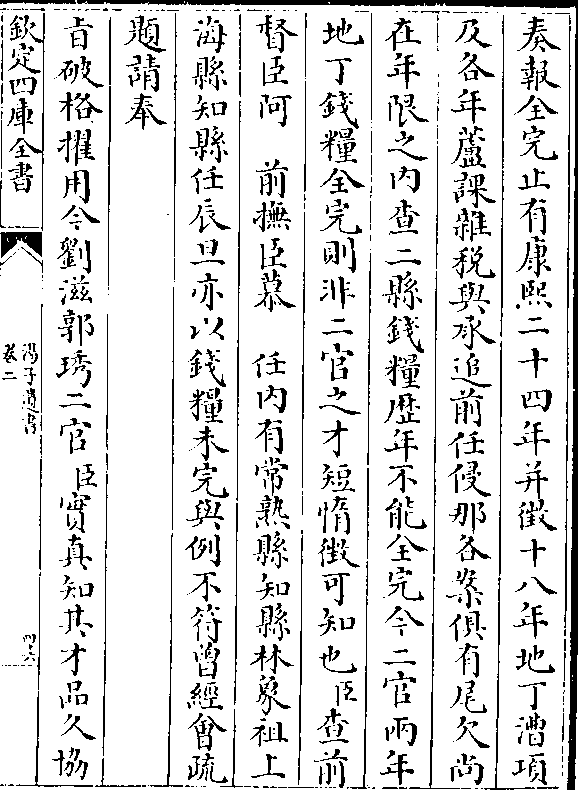 奏報全完止有康熙二十四年并徵十八年地丁漕項
及各年蘆課雜稅與承追前任侵那各案俱有尾欠尚
在年限之内查二縣錢糧歴年不能全完今二官兩年
地丁錢糧全完則非二官之才短惰徵可知也臣查前
督臣阿　前撫臣慕　任内有常熟縣知縣林象祖上
海縣知縣任辰旦亦以錢糧未完與例不符曽經會疏
題請奉
㫖破格擢用今劉滋郭琇二官臣實真知其才品久協
欽定四庫全書
湯子遺書
卷二
四六